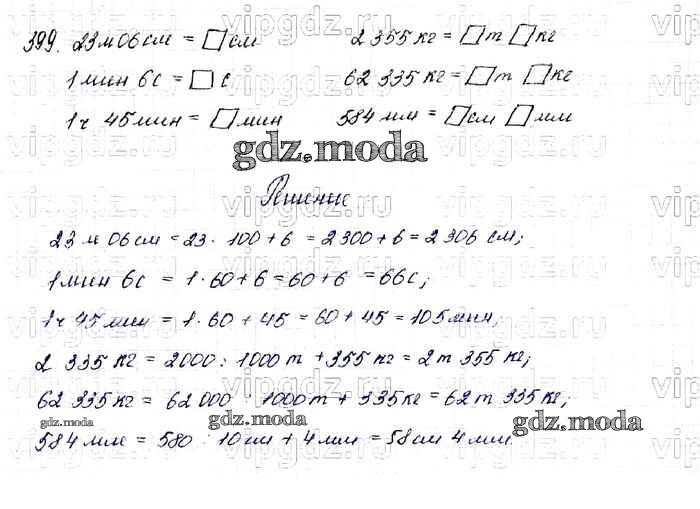 399. 23 м 06 см = □ см 2 355 кг = □ т □ кг
1 мин 6 с = □ с 62 335 кг = □ т □ кг
1 ч 45 мин = □ мин 584 мм = □ см □ мм
gdz.moda
Решение
23 м 06 см = 23 · 100 + 6 = 2300 + 6 = 2 306 см;
1 мин 6 с = 1 · 60 + 6 = 60 + 6 = 66 с;
1 ч 45 мин = 1 · 60 + 45 = 60 + 45 = 105 мин;
2 335 кг = 2000 : 1000 т + 355 кг = 2 т 355 кг;
62 335 кг = 62 000 : 1000 т + 335 кг = 62 т 335 кг;
gdz.moda gdz.moda gdz.moda
584 мм = 580 : 10 см + 4 мм = 58 см 4 мм.
vipgdz.ru vipgdz.ru vipgdz.ru